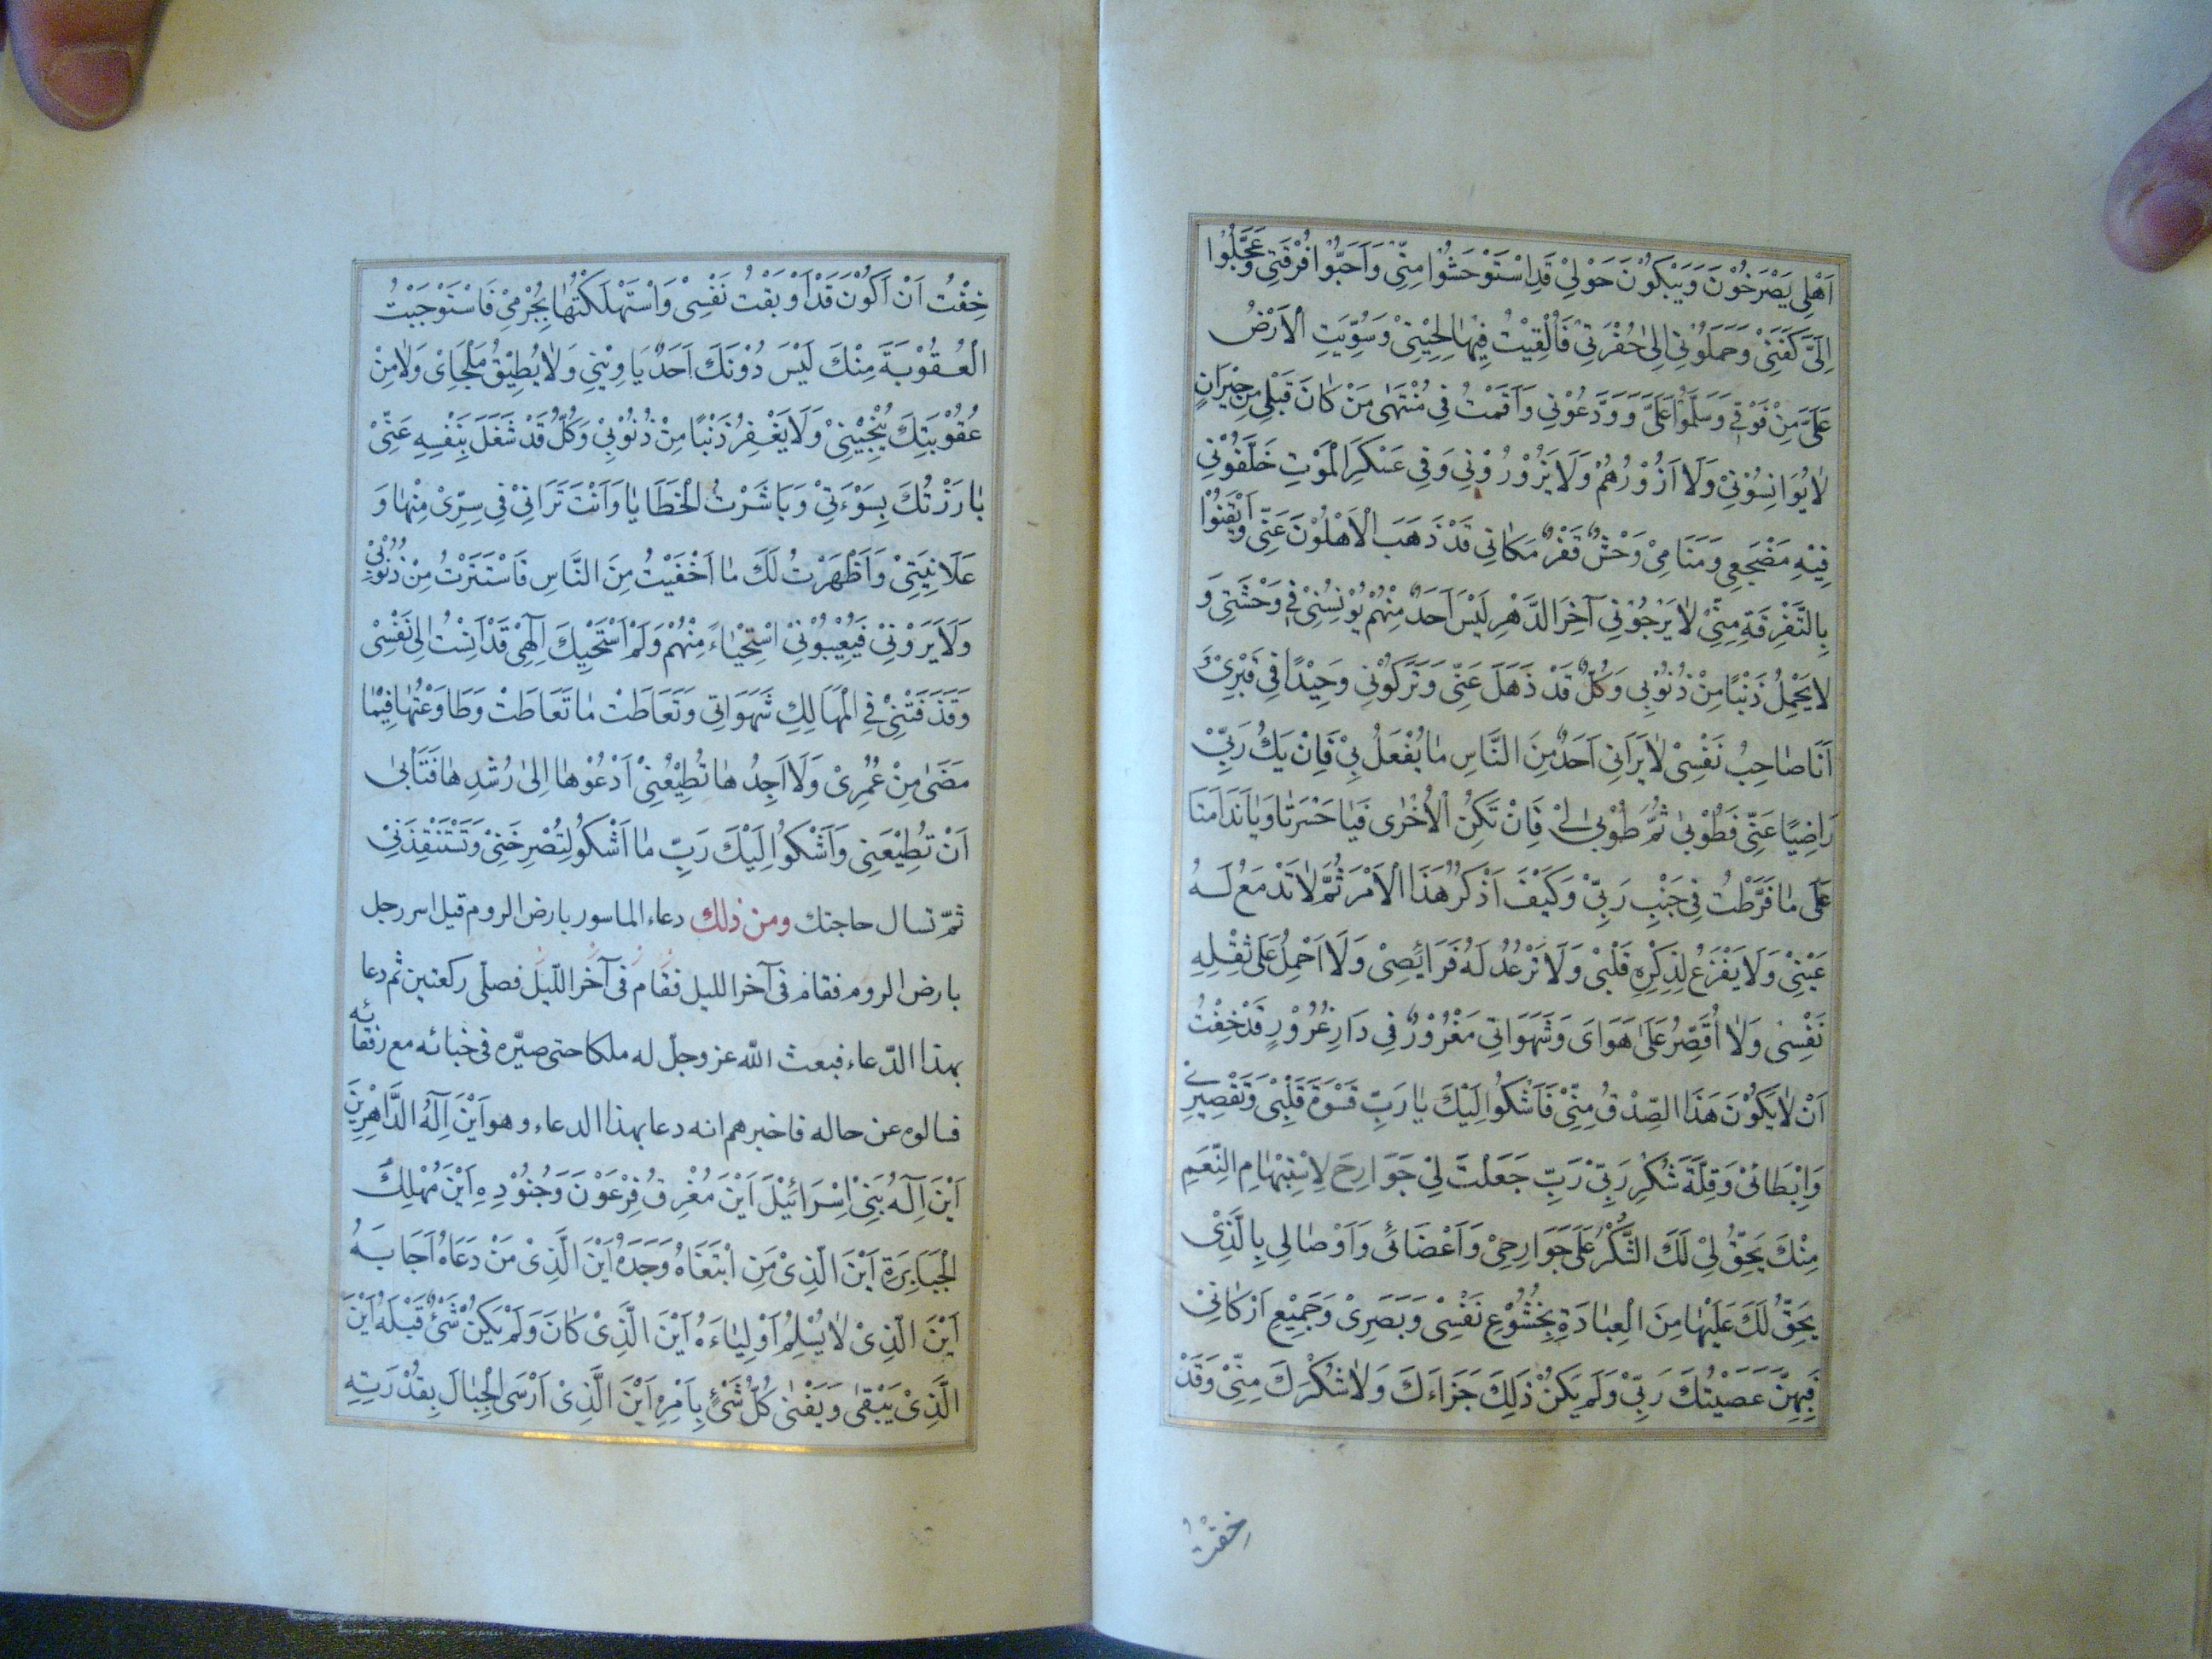 اَهْلِي يَصْرَخُوْنَ وَيَبْكُوْنَ حَوْلِيْ قَدِ اسْتَوْحَشُوْا مِنِّيْ وَاَحَبُّوْا فُرْقَتِي وَعَجَّلُوْا
اِلَيَّ كَفَنِيْ وَحَمَلُوْنِي اِلىٰ حُفْرَتِيْ فَاُلْقِيْتُ فِيْهٰا لِحِيْنِيْ وَسُوِّيَتِ الْاَرْضُ
عَلَيَّ مِنْ فَوْقِي وَسَلَّمُوْا عَلَيَّ وَوَدَّعُوْنِي وَاَقَمْتُ فِي مُنْتَهىٰ مَنْ كٰانَ قَبْلِي مِنْ جِيْرَانٍ
لاٰيُوَانِسُوْنِيْ وَلَا اَزُوْرُهُمْ وَلَا يَزُوْرُوْنِي وَفِي عَسْكَرِ الْمَوْتِ خَلَّفُوْنِي
فِيْهِ مَضْجَعِي وَمَنَامِيْ وَحْشٌ قَفْرٌ مَكٰانِي قَدْ ذَهَبَ الْاَهْلُوْنَ عَنِّي وَاَيْقَنُوْا
بِالتَّفْرِقَةِ مِنِّيْ لاٰ يَرْجُوْنِي آخِرَ الدَّهْرِ لَيْسَ اَحَدٌ مِنْهُمْ يُوْنِسُنِيْ فِي وَحْشَتِي وَ
لاٰ يَحْمِلُ ذَنْبًا مِنْ ذُنُوْبِي وَكُلٌّ قَدْ ذَهَلَ عَنِّي وَتَرَكُوْنِي وَحِيْدًا فِي قَبْرِيْ
اَنَا صٰاحِبُ نَفْسِيْ لاٰ يَرَانِي اَحَدٌ مِنَ النَّاسِ مٰا يُفْعَلُ بِيْ فَاِنْ يَكُ رَبِّيْ
رَاضِيًا عَنِّي فَطُوْبىٰ ثُمَّ طُوْبىٰ لِيْ فَاِنْ تَكُنِ الْاُخْرٰى فَيٰا حَسْرَتٰا وَيٰا نَدَامَتٰا
عَلىٰ مٰا فَرَّطْتُ فِي جَنْبِ رَبِّيْ وَكَيْفَ اَذْكُرُ هٰذَا الْاَمْرَ ثُمَّ لاٰ تَدْمَعُ لَهُ
عَيْنِيْ وَلَا يَفْزَعُ لِذِكْرِهِ قَلْبِيْ وَلَا تَرْعُدُ لَهُ فَرَائِصِيْ وَلَا اَحْمِلُ عَلىٰ ثِقْلِهِ
نَفْسِيْ وَلاٰ اُقَصِّرُ عَلىٰ هَوَايَ وَشَهَوَاتِي مَغْرُوْرٌ فِي دَارِ غُرُوْرٍ قَدْ خِفْتُ
اَنْ لاٰ يَكُوْنَ هٰذَا الصِّدْقُ مِنِّيْ فَاَشْكُوْ اِلَيْكَ يٰا رَبِّ قَسْوَةَ قَلْبِيْ وَتَقْصِيْرِيْ
وَاِبْطَائِيْ وَقِلَّةَ شُكْرِ رَبِّيْ رَبِّ جَعَلْتَ لِيْ جَوَارِحَ لِاسْتِتْهٰامِ النِّعَمِ
مِنْكَ يَحِقُّ لِيْ لَكَ الشُّكْرُ عَلىٰ جَوَارِحِيْ وَاَعْضَائِيْ وَاَوْصٰالِي بِالَّذِيْ
يَحِقُّ لَكَ عَلَيْهٰا مِنَ الْعِبَادَةِ بِخُشُوْعِ نَفْسِيْ وَبَصَرِيْ وَجَمِيْعِ اَرْكٰانِيْ
فَبِهِنَّ عَصَيْتُكَ رَبِّيْ وَلَمْ يَكُنْ ذٰلِكَ جَزَاءَكَ وَلاٰ شُكْرَكَ مِنِّيْ وَقَدْ
خِفْتُ
خِفْتُ اَنْ اَكُوْنَ قَدْ اَوْبَقْتُ نَفْسِيْ وَاسْتَهْلَكْتُهٰا بِجُرْمِيْ فَاسْتَوْجَبْتُ
الْعُقُوْبَةَ مِنْكَ لَيْسَ دُوْنَكَ اَحَدٌ يَاوِيْنِي وَلاٰ يُطِيْقُ مَلْجَاِيْ وَلاٰ مِنْ
عُقُوْبَتِكَ يُنْجِيْنِيْ وَلَا يَغْفِرُ ذَنْبًا مِنْ ذُنُوْبِيْ وَكُلٌّ قَدْ شَغَلَ بِنَفْسِهِ عَنِّيْ
بٰارَزْتُكَ بِسَوْءَتِيْ وَبَاشَرْتُ الْخَطَايٰا وَاَنْتَ تَرَانِيْ فِي سِرِّيْ مِنْهٰا وَ
عَلَانِيَتِيْ وَاَظْهَرْتُ لَكَ مٰا اَخْفَيْتُ مِنَ النَّاسِ فَاسْتَتَرْتُ مِنْ ذُنُوْبِيْ
وَلَا يَرَوْنِيْ فَيُعِيْبُوْنِيْ اسْتِحْيٰاءً مِنْهُمْ وَلَمْ اَسْتَحْيِكَ اِلٰهِيْ قَدْ اَنِسْتُ اِلىٰ نَفْسِيْ
وَقَذَفَتْنِيْ فِي الْمَهَالِكِ شَهَوَاتِي وَتَعَاطَتْ مٰا تَعَاطَتْ وَطَاوَعْتُهٰا فِيْمٰا
مَضىٰ مِنْ عُمُرِيْ وَلَا اَجِدُهٰا تُطِيْعُنِيْ اَدْعُوْهٰا اِلىٰ رُشْدِهٰا فَتَأْبىٰ
اَنْ تُطِيْعَنِي وَاَشْكُوْ اِلَيْكَ رَبِّ مٰا اَشْكُوْ لِتُصْرِخَنِيْ وَتَسْتَنْقِذَنِيْ
ثمّ تسال حاجتك ومن ذلك دعاء الماسور بارض الروم قيل اسر رجل
بارض الروم فقام فى آخر الليل فقام فى آخر اللّيل فصلّى ركعتين ثم دعا
بهذا الدّعاء فبعث اللّه عز وجلّ له ملكا حتى صيّره فى خبائه مع رفقائه
فسالوه عن حاله فاخبرهم انه دعا بهذا الدعاء وهو اَيْنَ اِلٰهُ الدَّاهِرِيْنَ
اَيْنَ اِلٰهُ بَنِيْ اِسْرَائِيْلَ اَيْنَ مُغْرِقُ فِرْعَوْنَ وَجُنُوْدِهِ اَيْنَ مُهْلِكُ
الْجَبَابِرَةِ اَيْنَ الَّذِيْ مَنِ ابْتَغَاهُ وَجَدَهُ اَيْنَ الَّذِيْ مَنْ دَعَاهُ اَجَابَهُ
اَيْنَ الَّذِيْ لاٰ يُسْلِمُ اَوْلِيٰاءَهُ اَيْنَ الَّذِيْ كٰانَ وَلَمْ يَكُنْ شَيْءٌ قَبْلَهُ اَيْنَ
الَّذِيْ يَبْقىٰ وَيَفْنىٰ كُلُّ شَيْءٍ بِاَمْرِهِ اَيْنَ الَّذِيْ اَرْسَى الْجِبٰالَ بِقُدْرَتِهِ